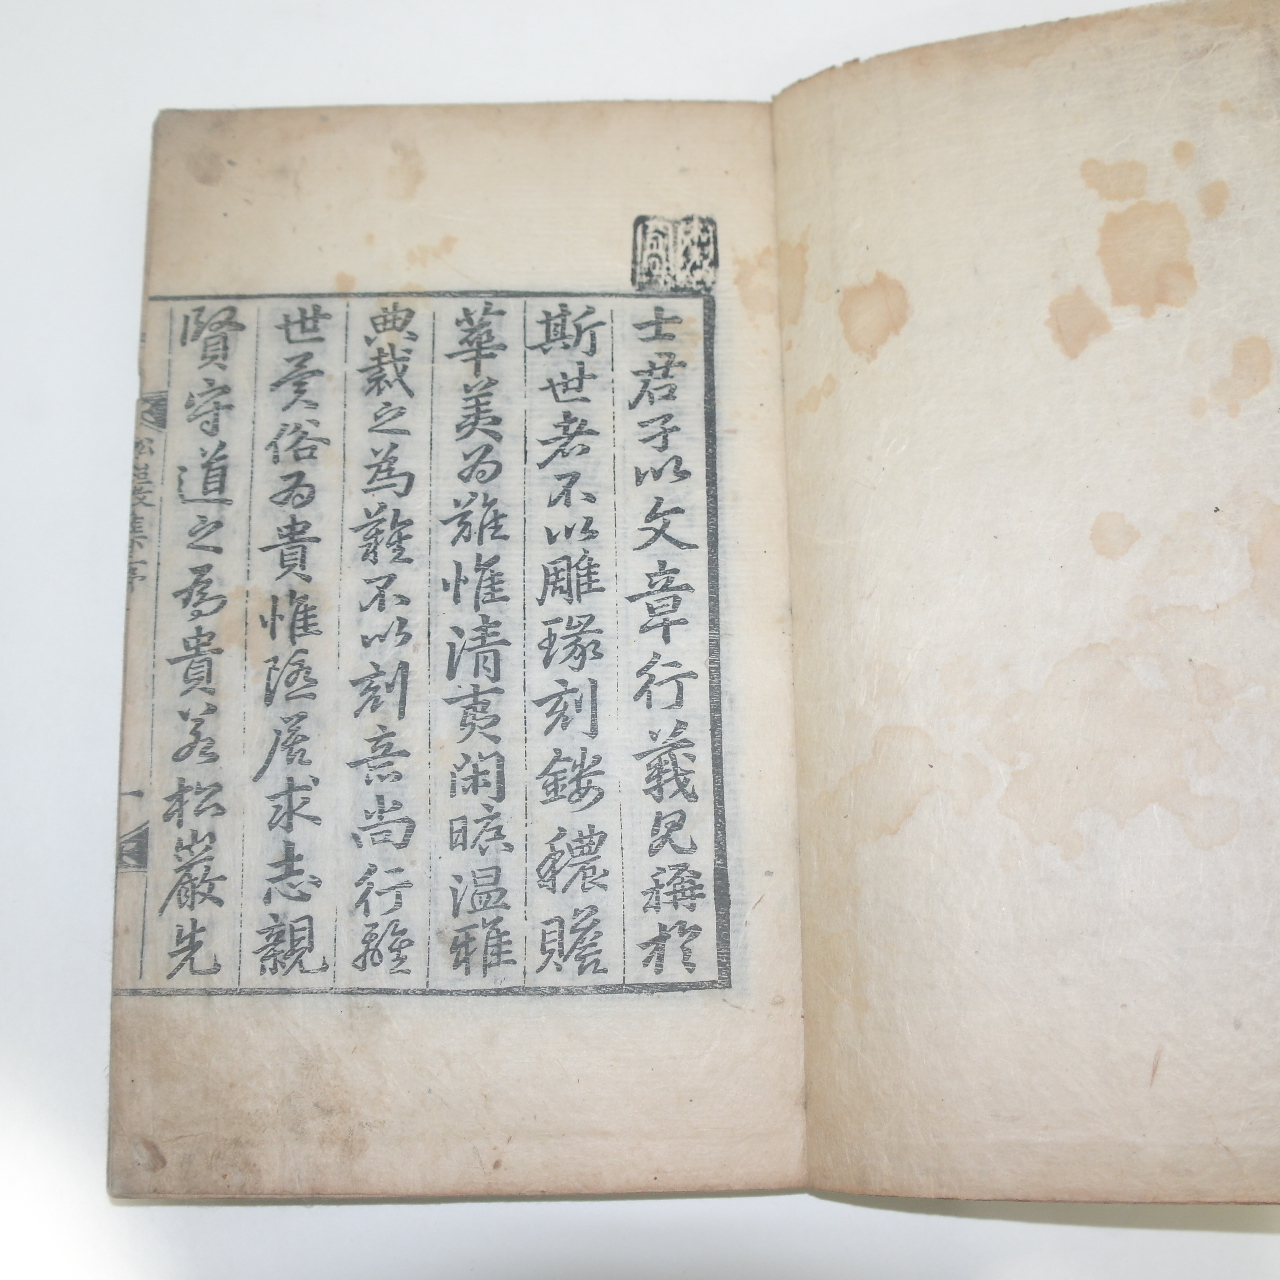 士君子以文章行義見稱於
斯世者不以雕瑑刻鏤穠贍
華美为難惟清夷閑曠温雅
典裁之為難不以刻意尚行離
世異俗为貴惟隱居求志親
賢守道之為貴若松巖先
松巖集序
一